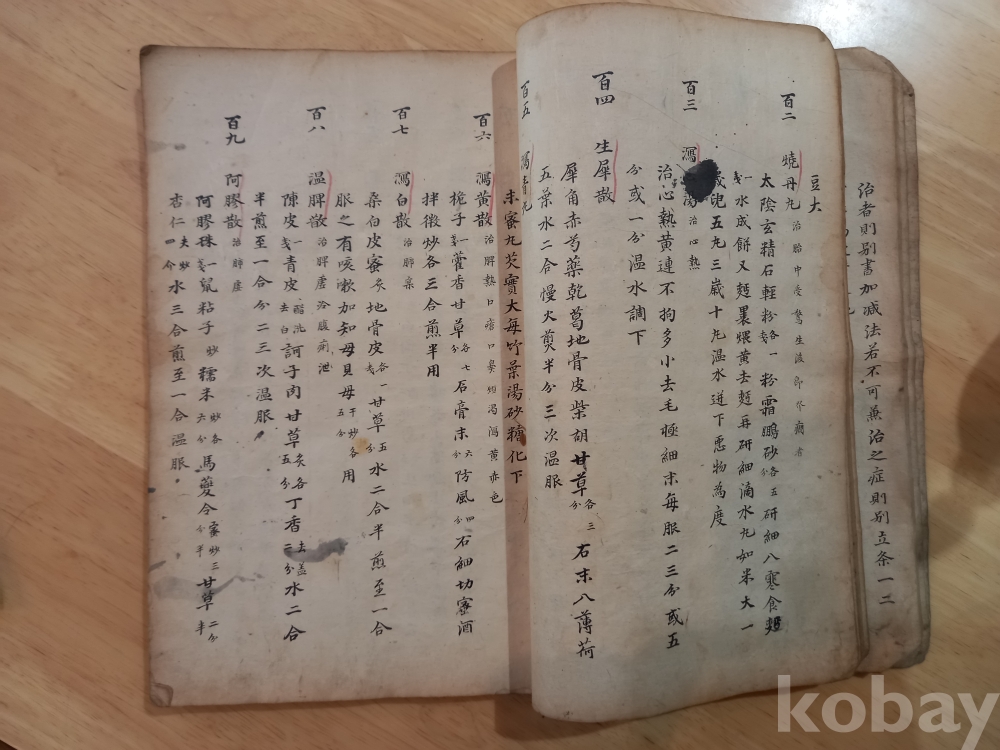 治者則別書加减法若不可兼治之症則别立条一二
豆大
百二 燒丹丸 治胎中受驚生後即作癇者
太陰玄精石輕粉各一戔粉霜鵬砂各五分研細入寒食麪
一戔水成餅又麪裹煨黃去麪再研細滴水丸如米大一
歲児五丸三歲十丸溫水送下惡物為度
百三 瀉湯 治心熱
治心熱黃連不拘多小去毛極細末每服二三分或五
分或一分溫水調下
百四 生犀散
犀角赤芍藥乾葛地骨皮柴胡甘草各三分右末入薄荷
五葉水二合慢火煎半分三次溫服
百五 瀉青丸
末蜜丸芡實大每竹葉湯砂糖化下
百六 瀉黃散 治脾熱口瘡口臭煩渴瀉黃赤色
梔子一戔藿香甘草各七分石膏末六分防風四分右細切蜜酒
拌微炒各三合煎半用
百七 瀉白散 治肺熱
桑白皮蜜炙地骨皮各一戔甘草五分水二合半煎至一合
服之有咳嗽加知母貝母干炒各五分用
百八 温脾散 治脾虛冷腹痢泄
陳皮一戔青皮醋洗去白訶子肉甘草炙各五分丁香去盖二分水二合
半煎至一合分二三次溫服
百九 阿膠散 治肺虛
阿膠珠一戔鼠粘子炒糯米炒各六分馬蔓令蜜炒三分半甘草二分半
杏仁去夫炒四介水三合煎至一合溫服
kobay